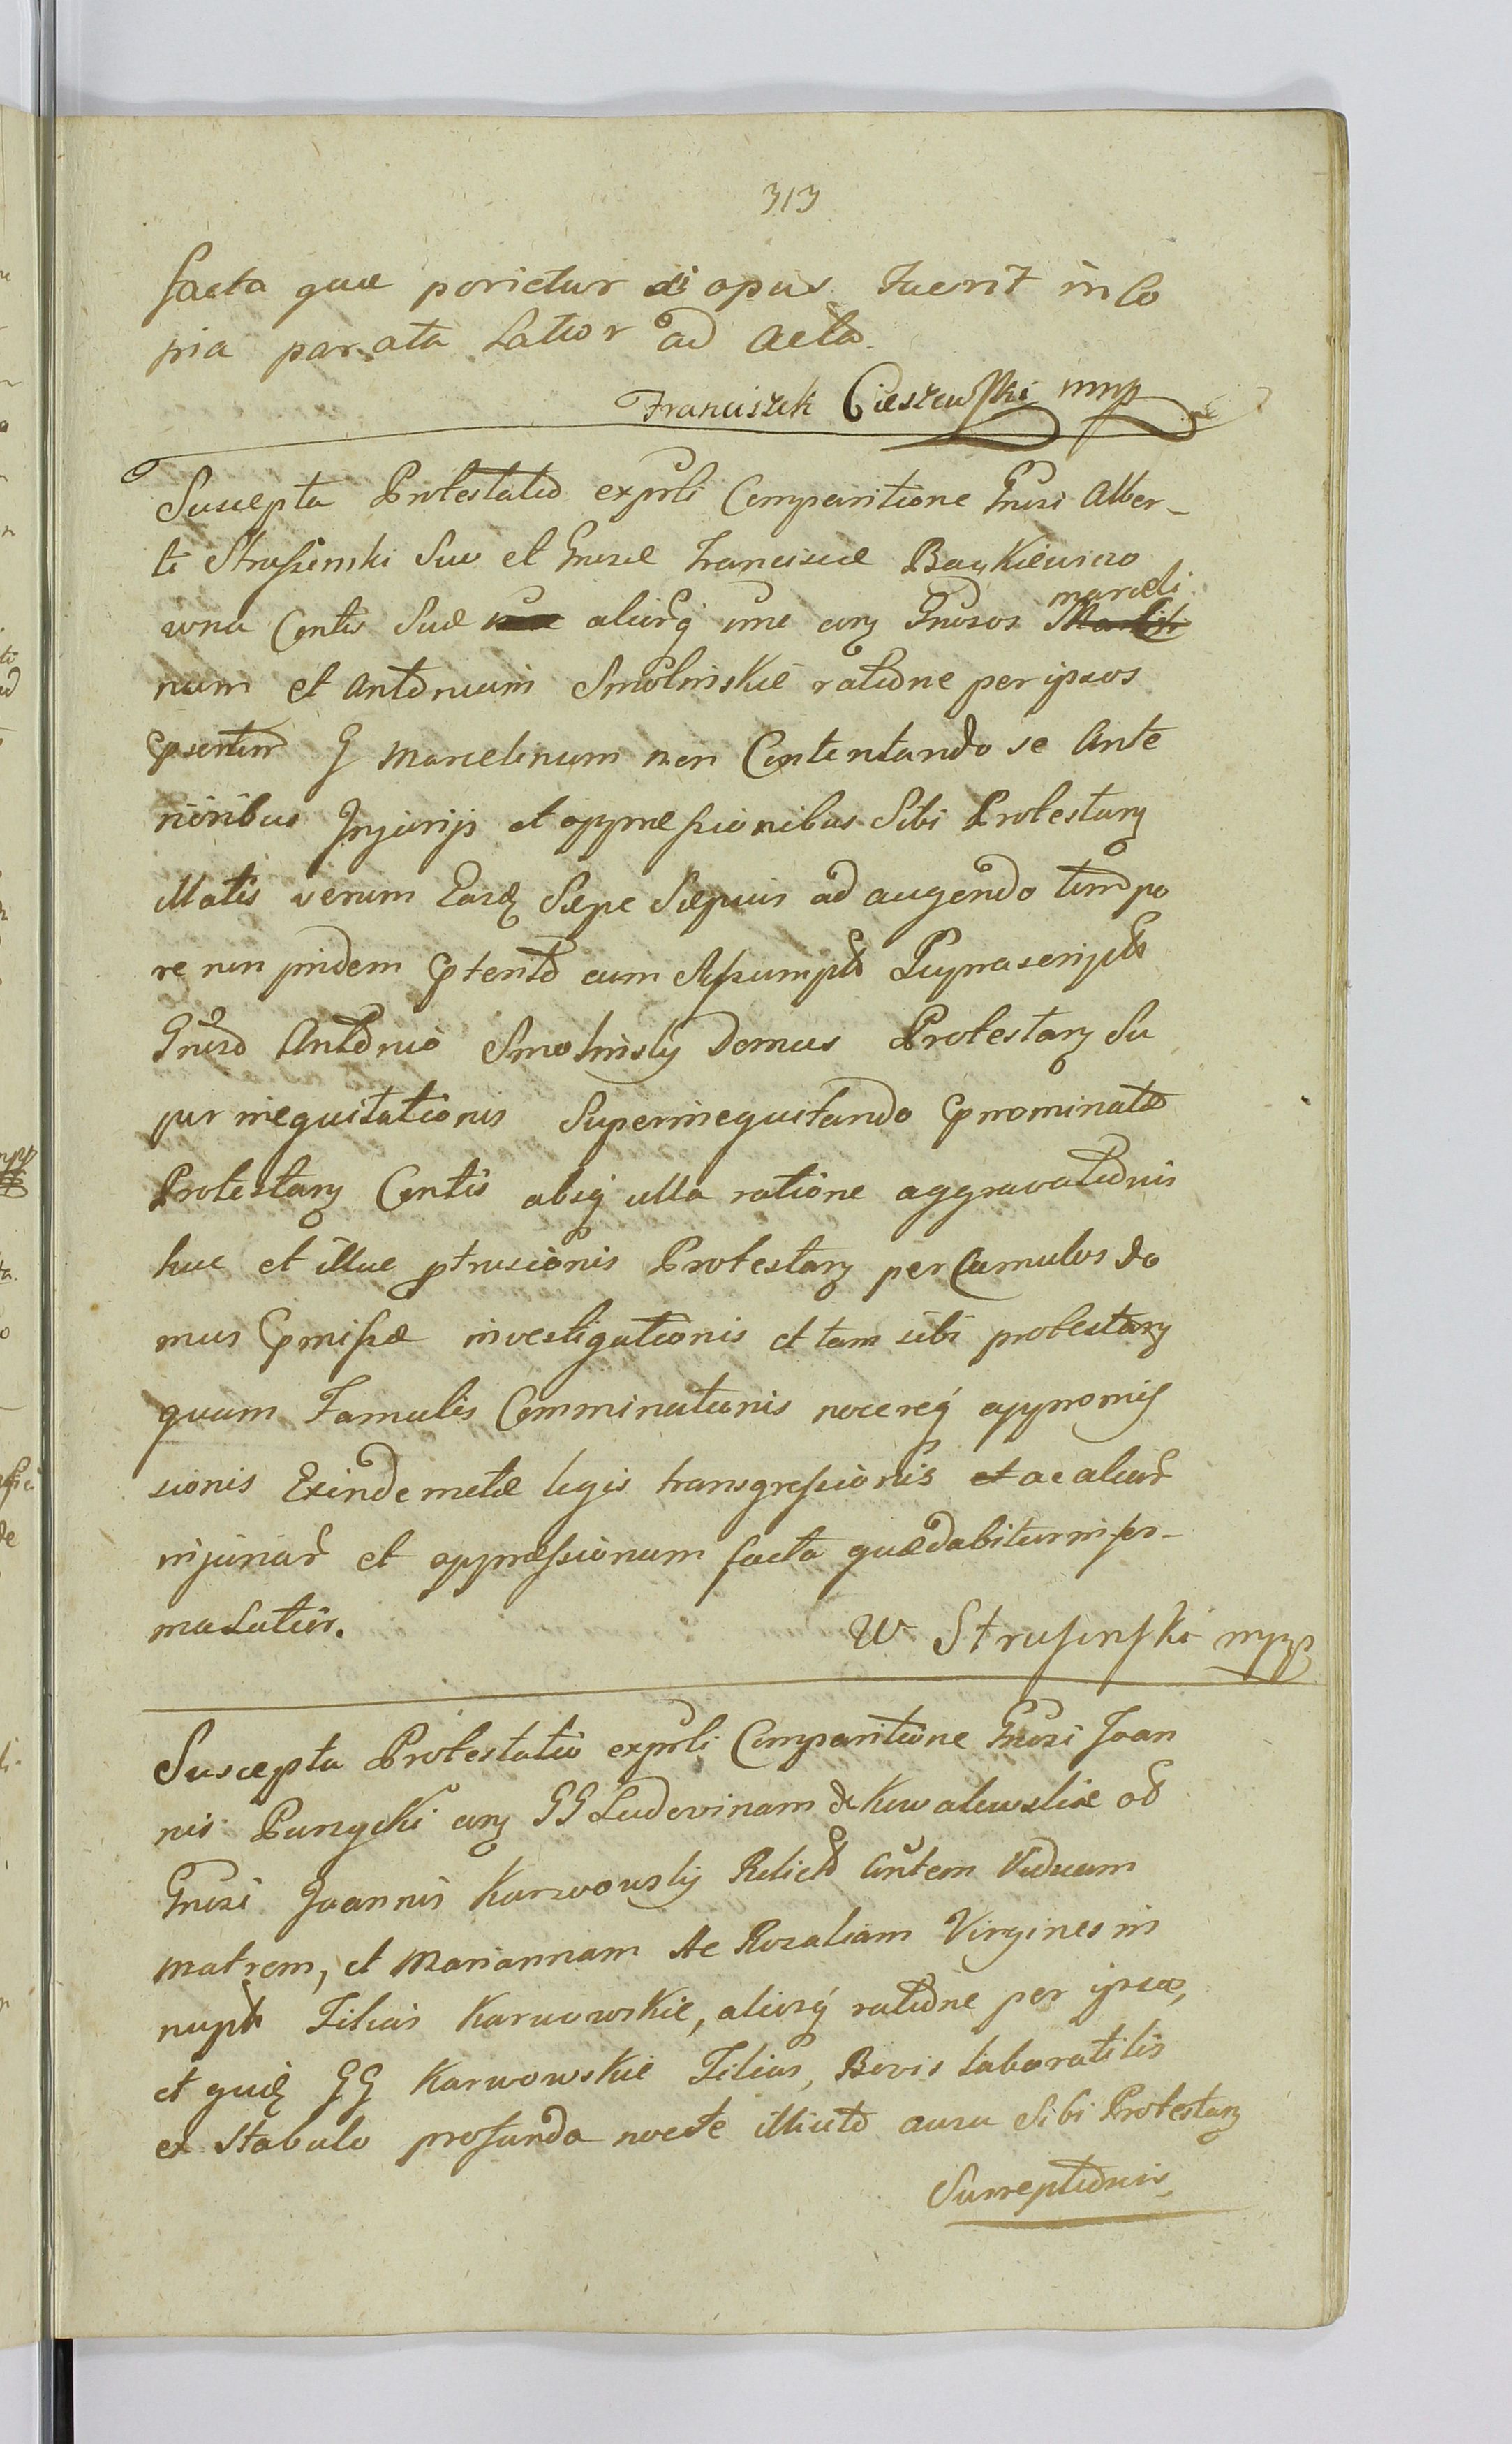 313
facta quæ porietur si opus fuerit in Co
pia parata Latior ad Acta.
Franciszek Cieszewski mmp
Suscepta Protestatio expñli Comparitione Gnrsi Alber-
ti Strusinski Suo et Gnrsæ Franciscæ Baykiewiczo
wna Contis Suæ aliorq̃ nñe cõtra Gnrsos marceli
num et Antonium Smolinskie ratione per ipsos
præsertim G Marcelinum non Contentando se Ante
rioribus Injurijs et oppressionibus Sibi Protestanz
illatis verum Easdẽ Sæpe Sæpius ad augendo tempo
re non pridem præterito cum Assumpto Supra scripto
Gnrso Antonio Smolinsky Domus Protestanz Su
per inequitationis Superinequitando prænominatæ
Protestanz Contis absq̃ ulla ratione aggravationis
huc et illuc protrusionis Protestanz per Cumulos do
mus præmissæ investigationis et tam sibi protestanz
quam Famulis Comminationis nocereq̃ appromis
sionis Exinde metæ legis transgressionis ac aliar̃
injuriar̃ et oppressionum facta quæ dabitur in for-
ma Latior.
W Strusinski mpp
Suscepta Protestatio expñli Comparitione Gnrsi Joan
nis Purzycki cõtra GG Ludovinam de Kowalewskie od
Gnrsi Joannis Karwowsky Relictã autem Viduam
matrem, et Mariannam Ac Rozaliam Virgines in
nuptas Filias Karwowskie, aliorq̃ ratione per ipsas,
et quidẽ GG Karwowskie Filias, Bovis laboratilis
ex Stabulo profunda nocte illicito ausu Sibi Protestanz
Surreptionis